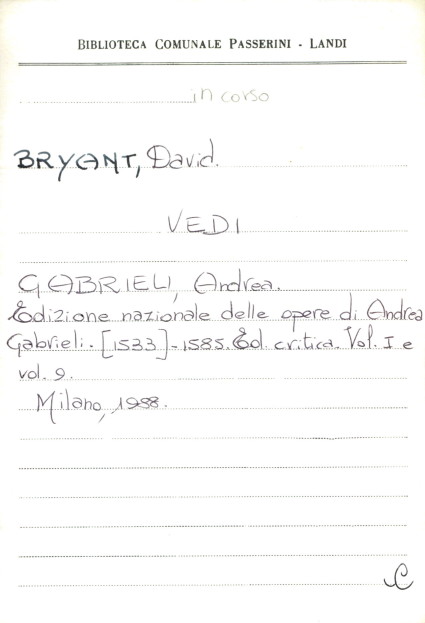 BIBLIOTECA COMUNALE PASSERINI - LANDI
in corso
BRYANT, David.
VEDI
GABRIELI, Andrea.
Edizione nazionale delle opere di Andrea
Gabrieli. [1533]-1585. Ed. critica. Vol. I e
vol. 9.
Milano, 1988.
C